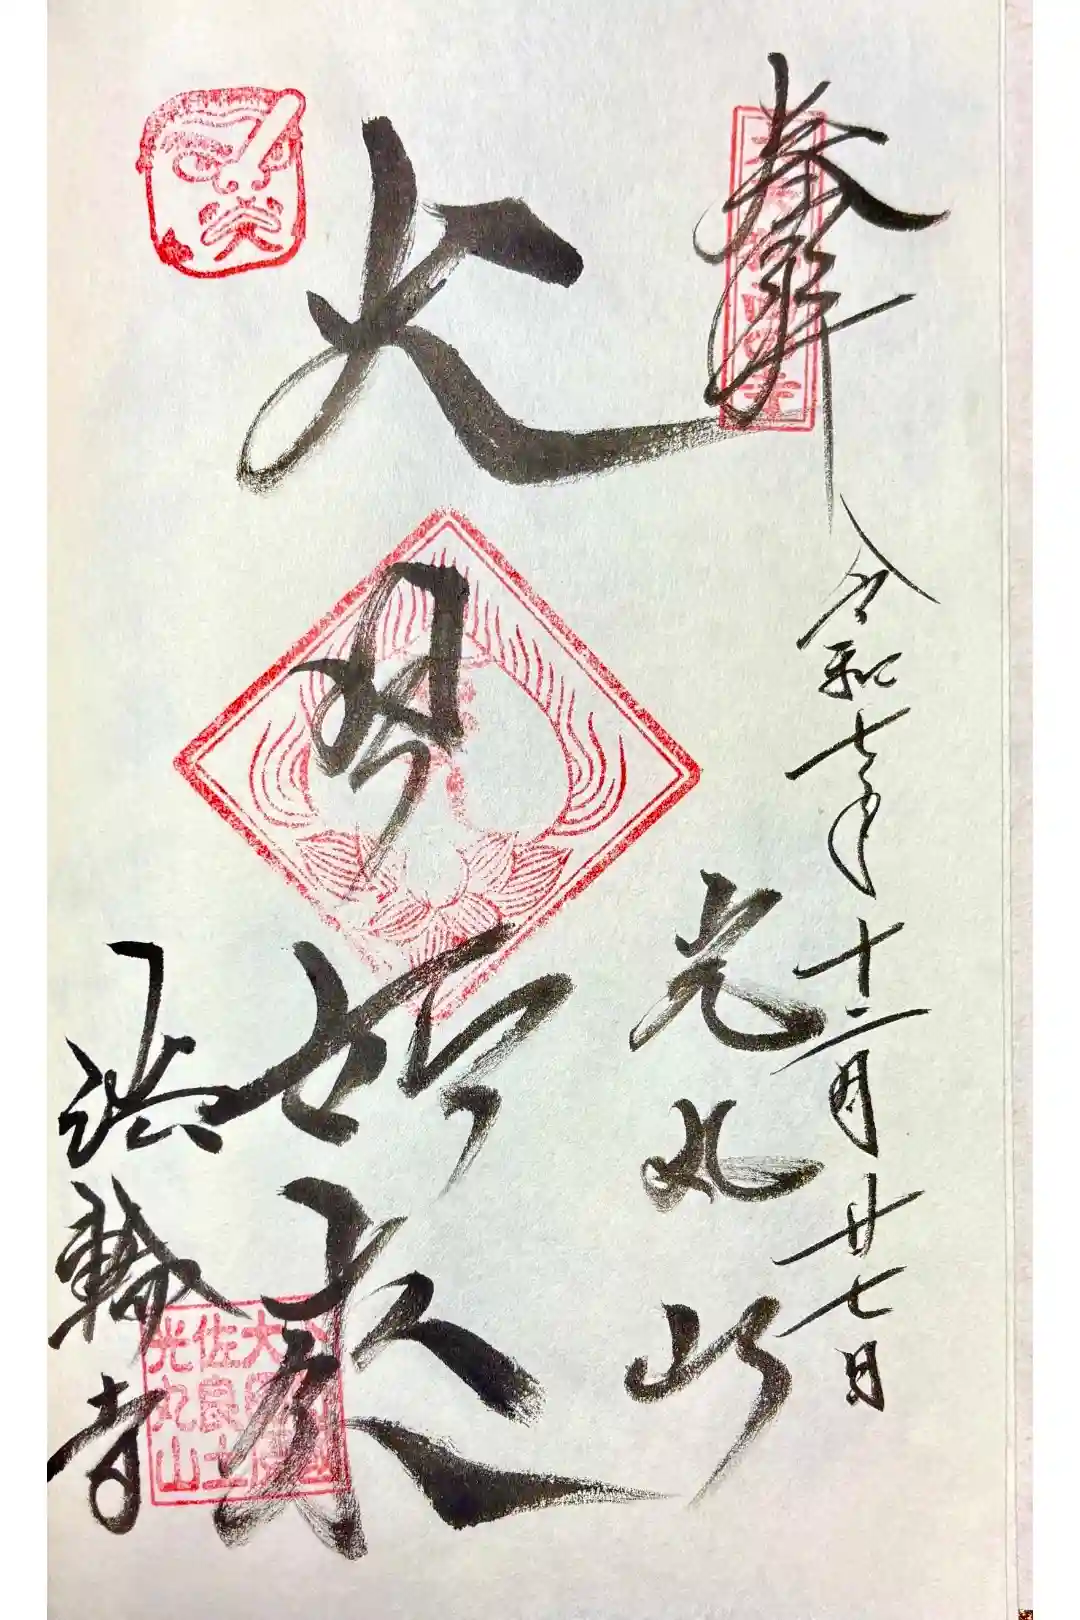 奉拝
令和七年十二月廿七日
光丸山
大日如来
法輪寺
大
佐良土
光丸山